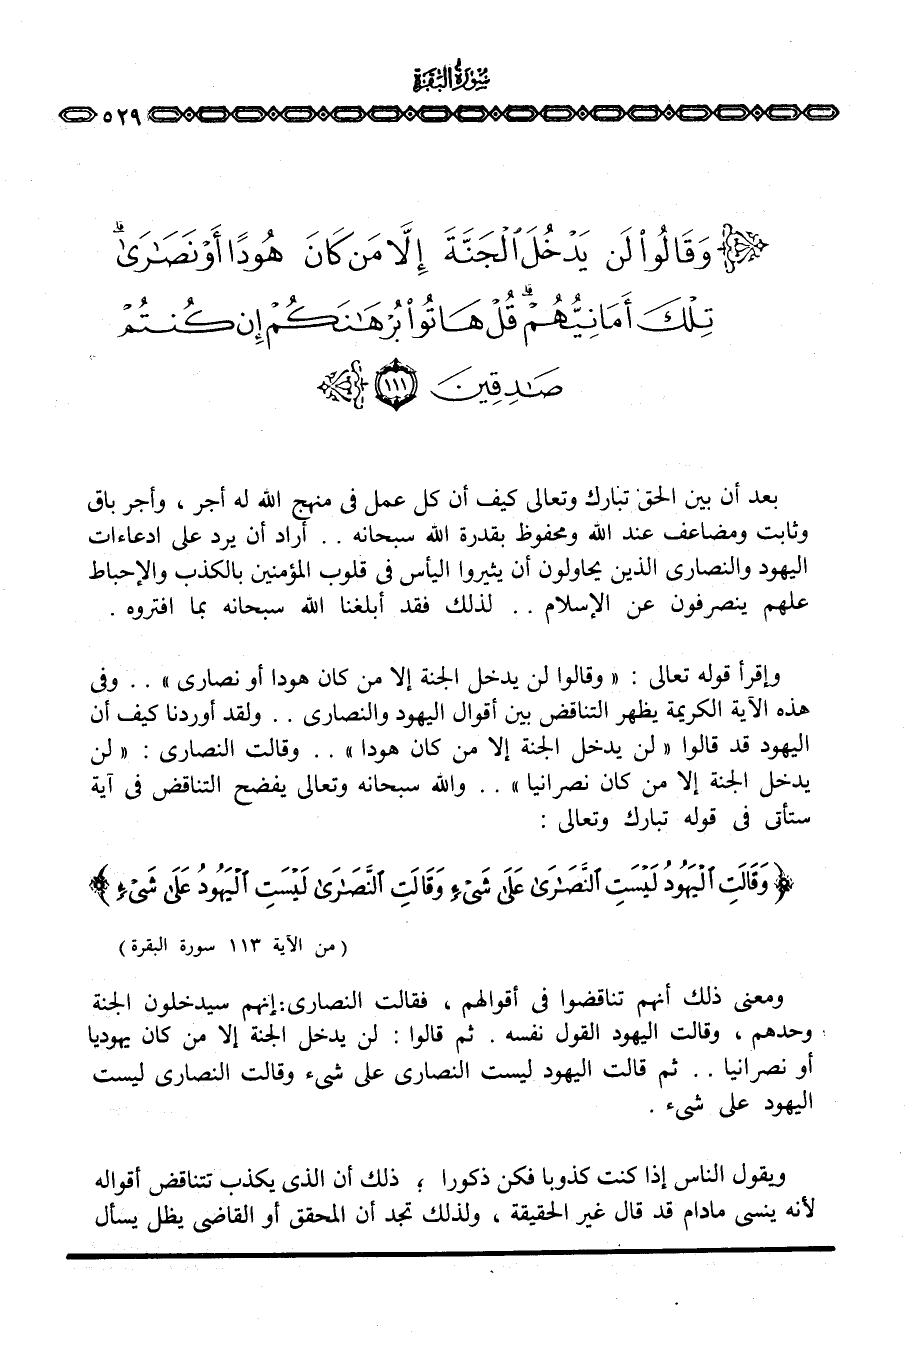 سورة البقرة
٥٢٩
وَقَالُوا۟ لَن يَدْخُلَ ٱلْجَنَّةَ إِلَّا مَن كَانَ هُودًا أَوْ نَصَـٰرَىٰ ۗ
تِلْكَ أَمَانِيُّهُمْ ۗ قُلْ هَاتُوا۟ بُرْهَـٰنَكُمْ إِن كُنتُمْ
صَـٰدِقِينَ ١١١
بعد أن بين الحق تبارك وتعالى كيف أن كل عمل فى منهج الله له أجر ، وأجر باق
وثابت ومضاعف عند الله ومحفوظ بقدرة الله سبحانه . . أراد أن يرد على ادعاءات
اليهود والنصارى الذين يحاولون أن يثيروا اليأس فى قلوب المؤمنين بالكذب والإحباط
علهم ينصرفون عن الإسلام . . لذلك فقد أبلغنا الله سبحانه بما افتروه .
وإقرأ قوله تعالى : « وقالوا لن يدخل الجنة إلا من كان هودا أو نصارى » . . وفى
هذه الآية الكريمة يظهر التناقض بين أقوال اليهود والنصارى . . ولقد أوردنا كيف أن
اليهود قد قالوا « لن يدخل الجنة إلا من كان هودا » . . وقالت النصارى : « لن
يدخل الجنة إلا من كان نصرانيا » . . والله سبحانه وتعالى يفضح التناقض فى آية
ستأتى فى قوله تبارك وتعالى :
﴿ وَقَالَتِ ٱلْيَهُودُ لَيْسَتِ ٱلنَّصَـٰرَىٰ عَلَىٰ شَىْءٍ وَقَالَتِ ٱلنَّصَـٰرَىٰ لَيْسَتِ ٱلْيَهُودُ عَلَىٰ شَىْءٍ ﴾
( من الآية ١١٣ سورة البقرة )
ومعنى ذلك أنهم تناقضوا فى أقوالهم ، فقالت النصارى : إنهم سيدخلون الجنة
وحدهم ، وقالت اليهود القول نفسه . ثم قالوا : لن يدخل الجنة إلا من كان يهوديا
أو نصرانيا . . ثم قالت اليهود ليست النصارى على شىء وقالت النصارى ليست
اليهود على شىء .
ويقول الناس إذا كنت كذوبا فكن ذكورا ؛ ذلك أن الذى يكذب تتناقض أقواله
لأنه ينسى مادام قد قال غير الحقيقة ، ولذلك تجد أن المحقق أو القاضى يظل يسأل